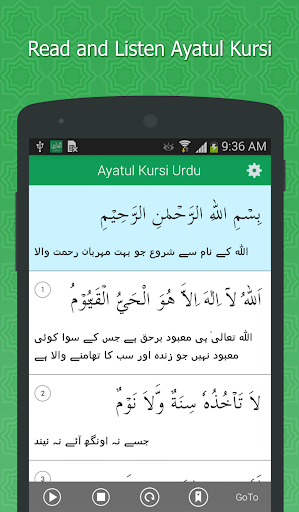 Read and Listen Ayatul Kursi
9:36 AM
Ayatul Kursi Urdu
بِسْمِ اللهِ الرَّحْمٰنِ الرَّحِيْمِ
الله کے نام سے شروع جو بہت مہربان رحمت والا
1
اَللهُ لَآ اِلٰهَ اِلَّا هُوَ الْحَيُّ الْقَيُّوْمُ
الله تعالیٰ ہی معبود برحق ہے جس کے سوا کوئی
معبود نہیں جو زندہ اور سب کا تھامنے والا ہے
2
لَا تَاْخُذُهٗ سِنَةٌ وَّلَا نَوْمٌ
جسے نہ اونگھ آئے نہ نیند
3
GoTo